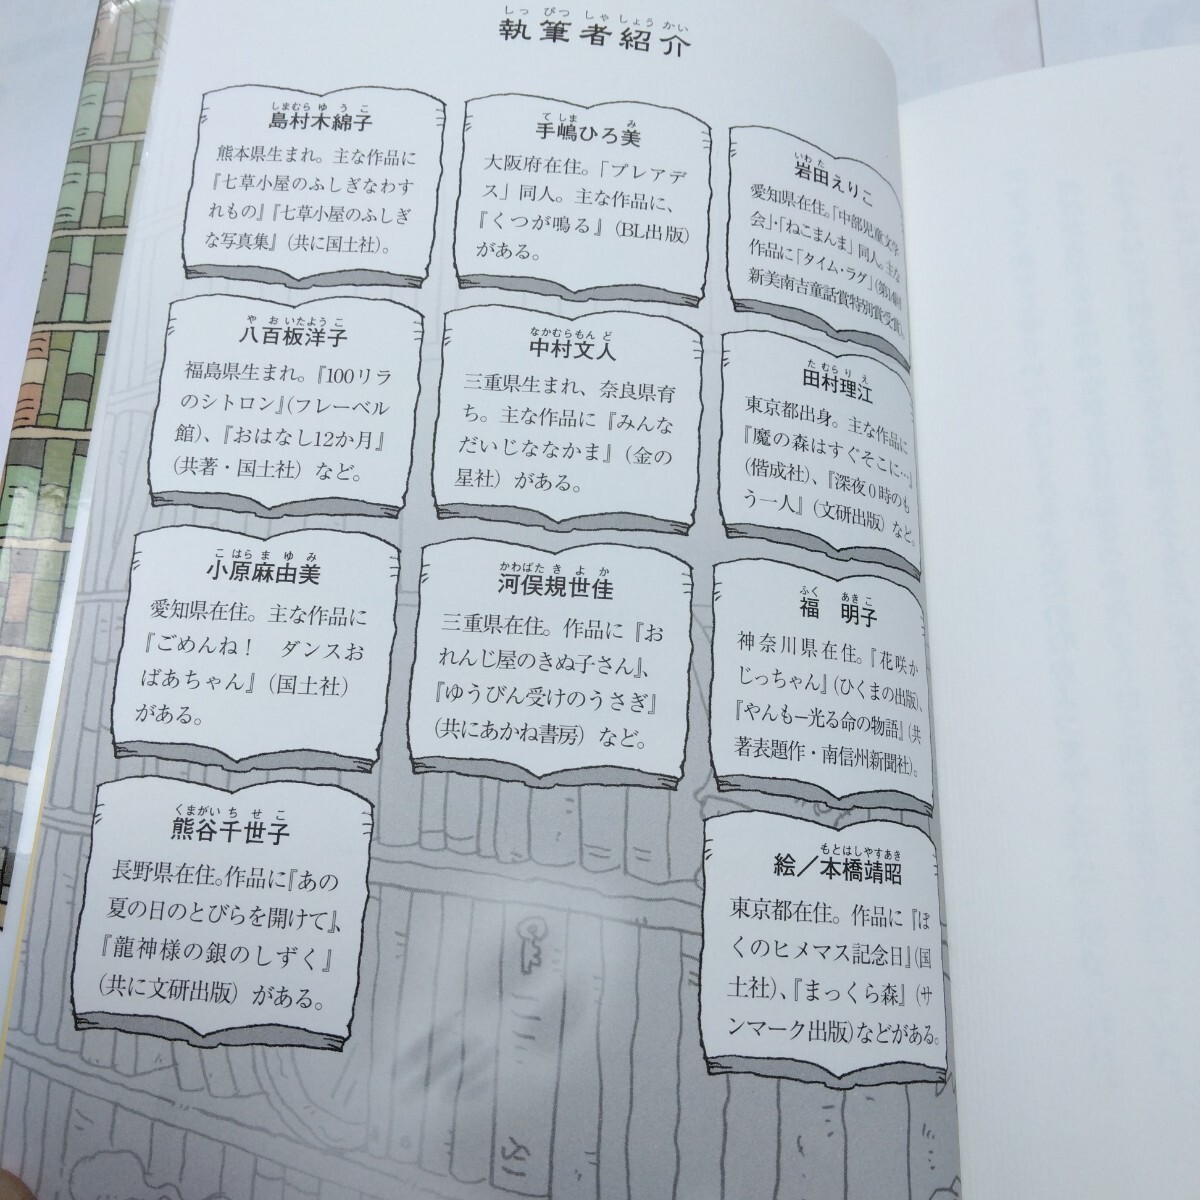 しっぴつしゃしょうかい
執筆者紹介
しまむらゆうこ
島村木綿子
熊本県生まれ。主な作品に
『七草小屋のふしぎなわす
れもの』『七草小屋のふしぎ
な写真集』（共に国土社）。
てしま み
手嶋ひろ美
大阪府在住。「プレアデ
ス」同人。主な作品に、
『くつが鳴る』（BL出版）
がある。
いわた
岩田えりこ
愛知県在住。「中部児童文学
会」・「ねこまんま」同人。主な
作品に「タイム・ラグ」（第14回
新美南吉童話賞特別賞受賞）。
やおいたようこ
八百板洋子
福島県生まれ。『100リラ
のシトロン』（フレーベル
館）、『おはなし12か月』
（共著・国土社）など。
なかむらもんど
中村文人
三重県生まれ、奈良県育
ち。主な作品に『みんな
だいじななかま』（金の
星社）がある。
たむらりえ
田村理江
東京都出身。主な作品に
『魔の森はすぐそこに…』
（偕成社）、『深夜0時のも
う一人』（文研出版）など。
こはらまゆみ
小原麻由美
愛知県在住。主な作品に
『ごめんね！　ダンスお
ばあちゃん』（国土社）
がある。
かわばたきよか
河俣規世佳
三重県在住。作品に『お
れんじ屋のきぬ子さん』、
『ゆうびん受けのうさぎ』
（共にあかね書房）など。
ふく あきこ
福　明子
神奈川県在住。『花咲か
じっちゃん』（ひくまの出版）、
『やんも―光る命の物語』（共
著表題作・南信州新聞社）。
くまがいちせこ
熊谷千世子
長野県在住。作品に『あの
夏の日のとびらを開けて』、
『龍神様の銀のしずく』
（共に文研出版）がある。
もとはしやすあき
絵／本橋靖昭
東京都在住。作品に『ぼ
くのヒメマス記念日』（国
土社）、『まっくら森』（サ
ンマーク出版）などがある。